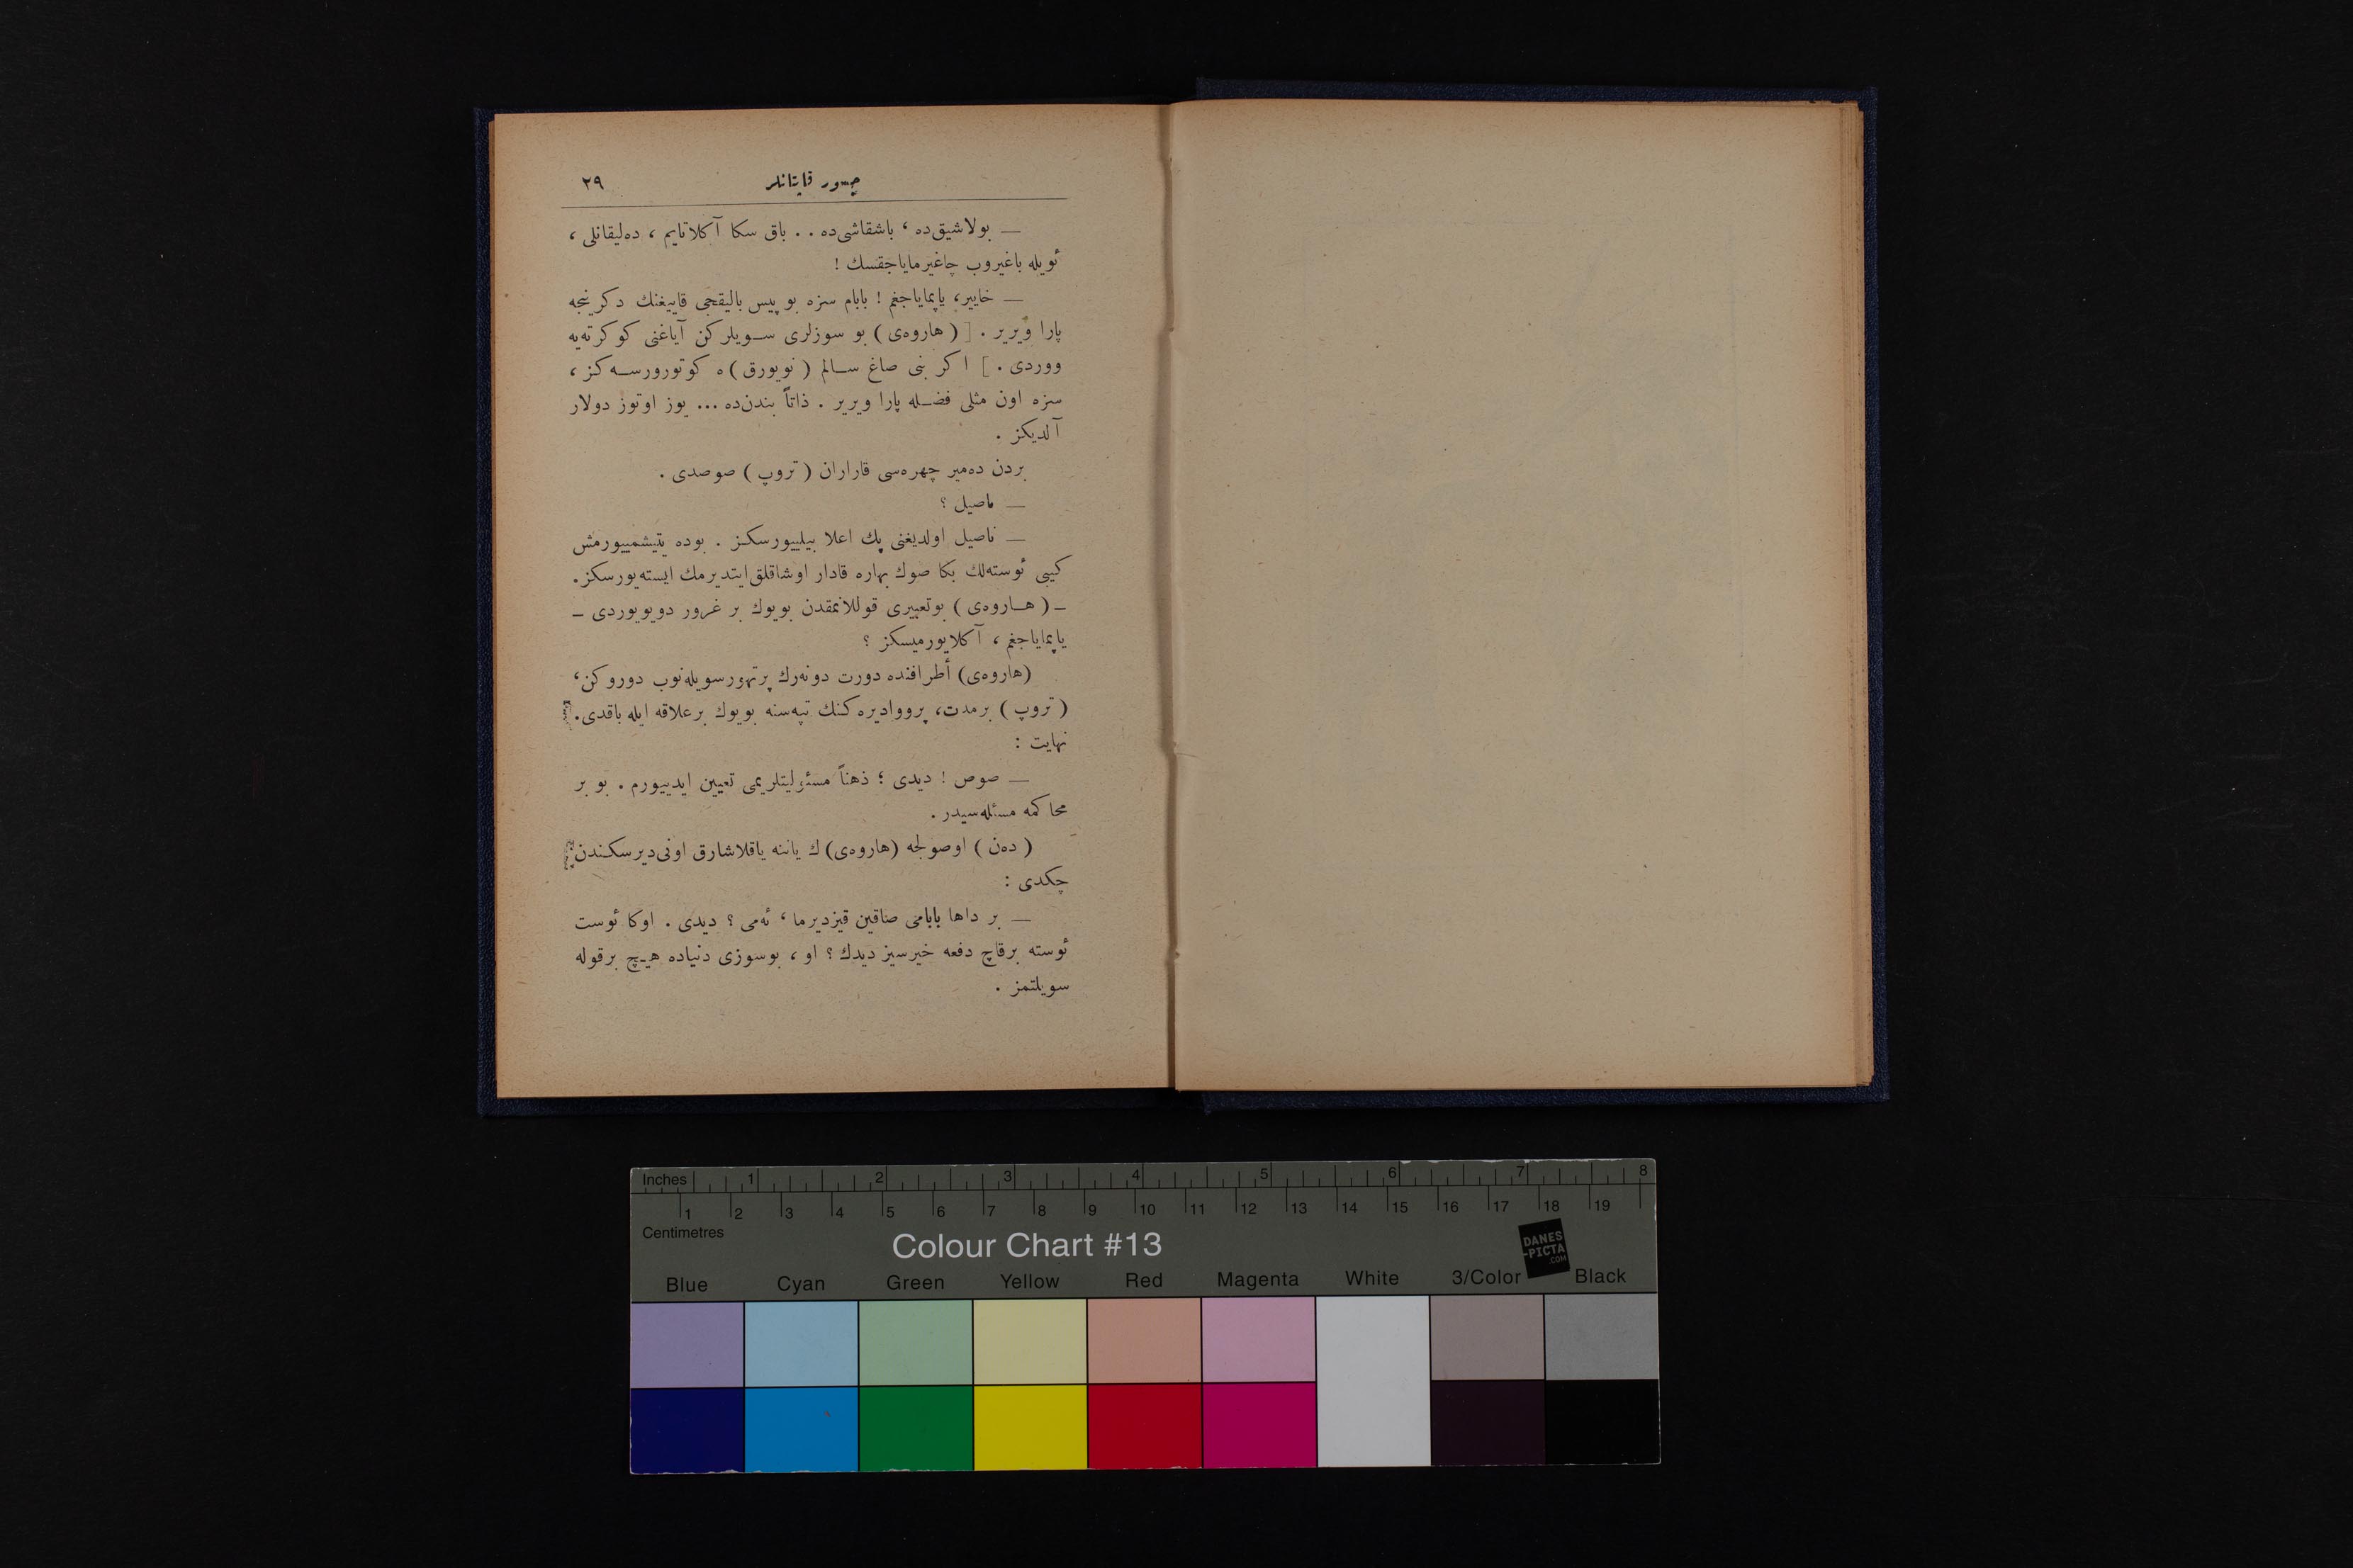 جسور قاپتانلر ٢٩
— بولاشیق‌ده ، باشقاشی‌ده . . باق سكا آكلاتایم ، ده‌لیقانلی ،
ئویله باغیروب چاغیرمایاجقسك !
— خاییر، یاپمایاجغم ! بابام سزه بو پیس بالیقجی قاییغنك دكرینجه
پارا ویریر . [ ( هاروه‌ی ) بو سوزلری سویلركن آیاغنی كوكرته‌یه
ووردی . ] اكر بنی صاغ سالم ( نویورق ) ه كوتورورسه‌كز ،
سزه اون مثلی فضله پارا ویریر . ذاتاً بندن‌ده ... یوز اوتوز دولار
آلدیكز .
بردن ده‌میر چهره‌سی قاراران ( تروپ ) صوصدی .
— ناصیل ؟
— ناصیل اولدیغنی پك اعلا بیلییورسكز . بوده یتیشمییورمش
كیبی ئوسته‌لك بكا صوك بهاره قادار اوشاقلق ایتدیرمك ایسته‌یورسكز.
ـ ( هاروه‌ی ) بوتعبیری قوللانمقدن بویوك بر غرور دویویوردی ـ
یاپمایاجغم ، آكلایورمیسكز ؟
(هاروه‌ی) أطرافنده دورت دونه‌رك پرتهور سویله‌نوب دوروكن،
( تروپ ) برمدت، پرووادیره‌كنك تپه‌سنه بویوك برعلاقه ایله باقدی.
نهایت :
— صوص ! دیدی ؛ ذهناً مسئولیتلریمی تعیین ایدییورم . بو بر
محاكمه مسئله‌سیدر .
( ده‌ن ) اوصولجه (هاروه‌ی) ك یاننه یاقلاشارق اونی‌دیرسكندن
چكدی :
— بر داها بابامی صاقین قیزدیرما ، ئه‌می ؟ دیدی . اوكا ئوست
ئوسته برقاچ دفعه خیرسیز دیدك ؟ او ، بوسوزی دنیاده هیچ برقوله
سویلتمز .
Inches 1 2 3 4 5 6 7 8
1 2 3 4 5 6 7 8 9 10 11 12 13 14 15 16 17 18 19
Centimetres
Colour Chart #13
DANES
-PICTA
.COM
Blue Cyan Green Yellow Red Magenta White 3/Color Black